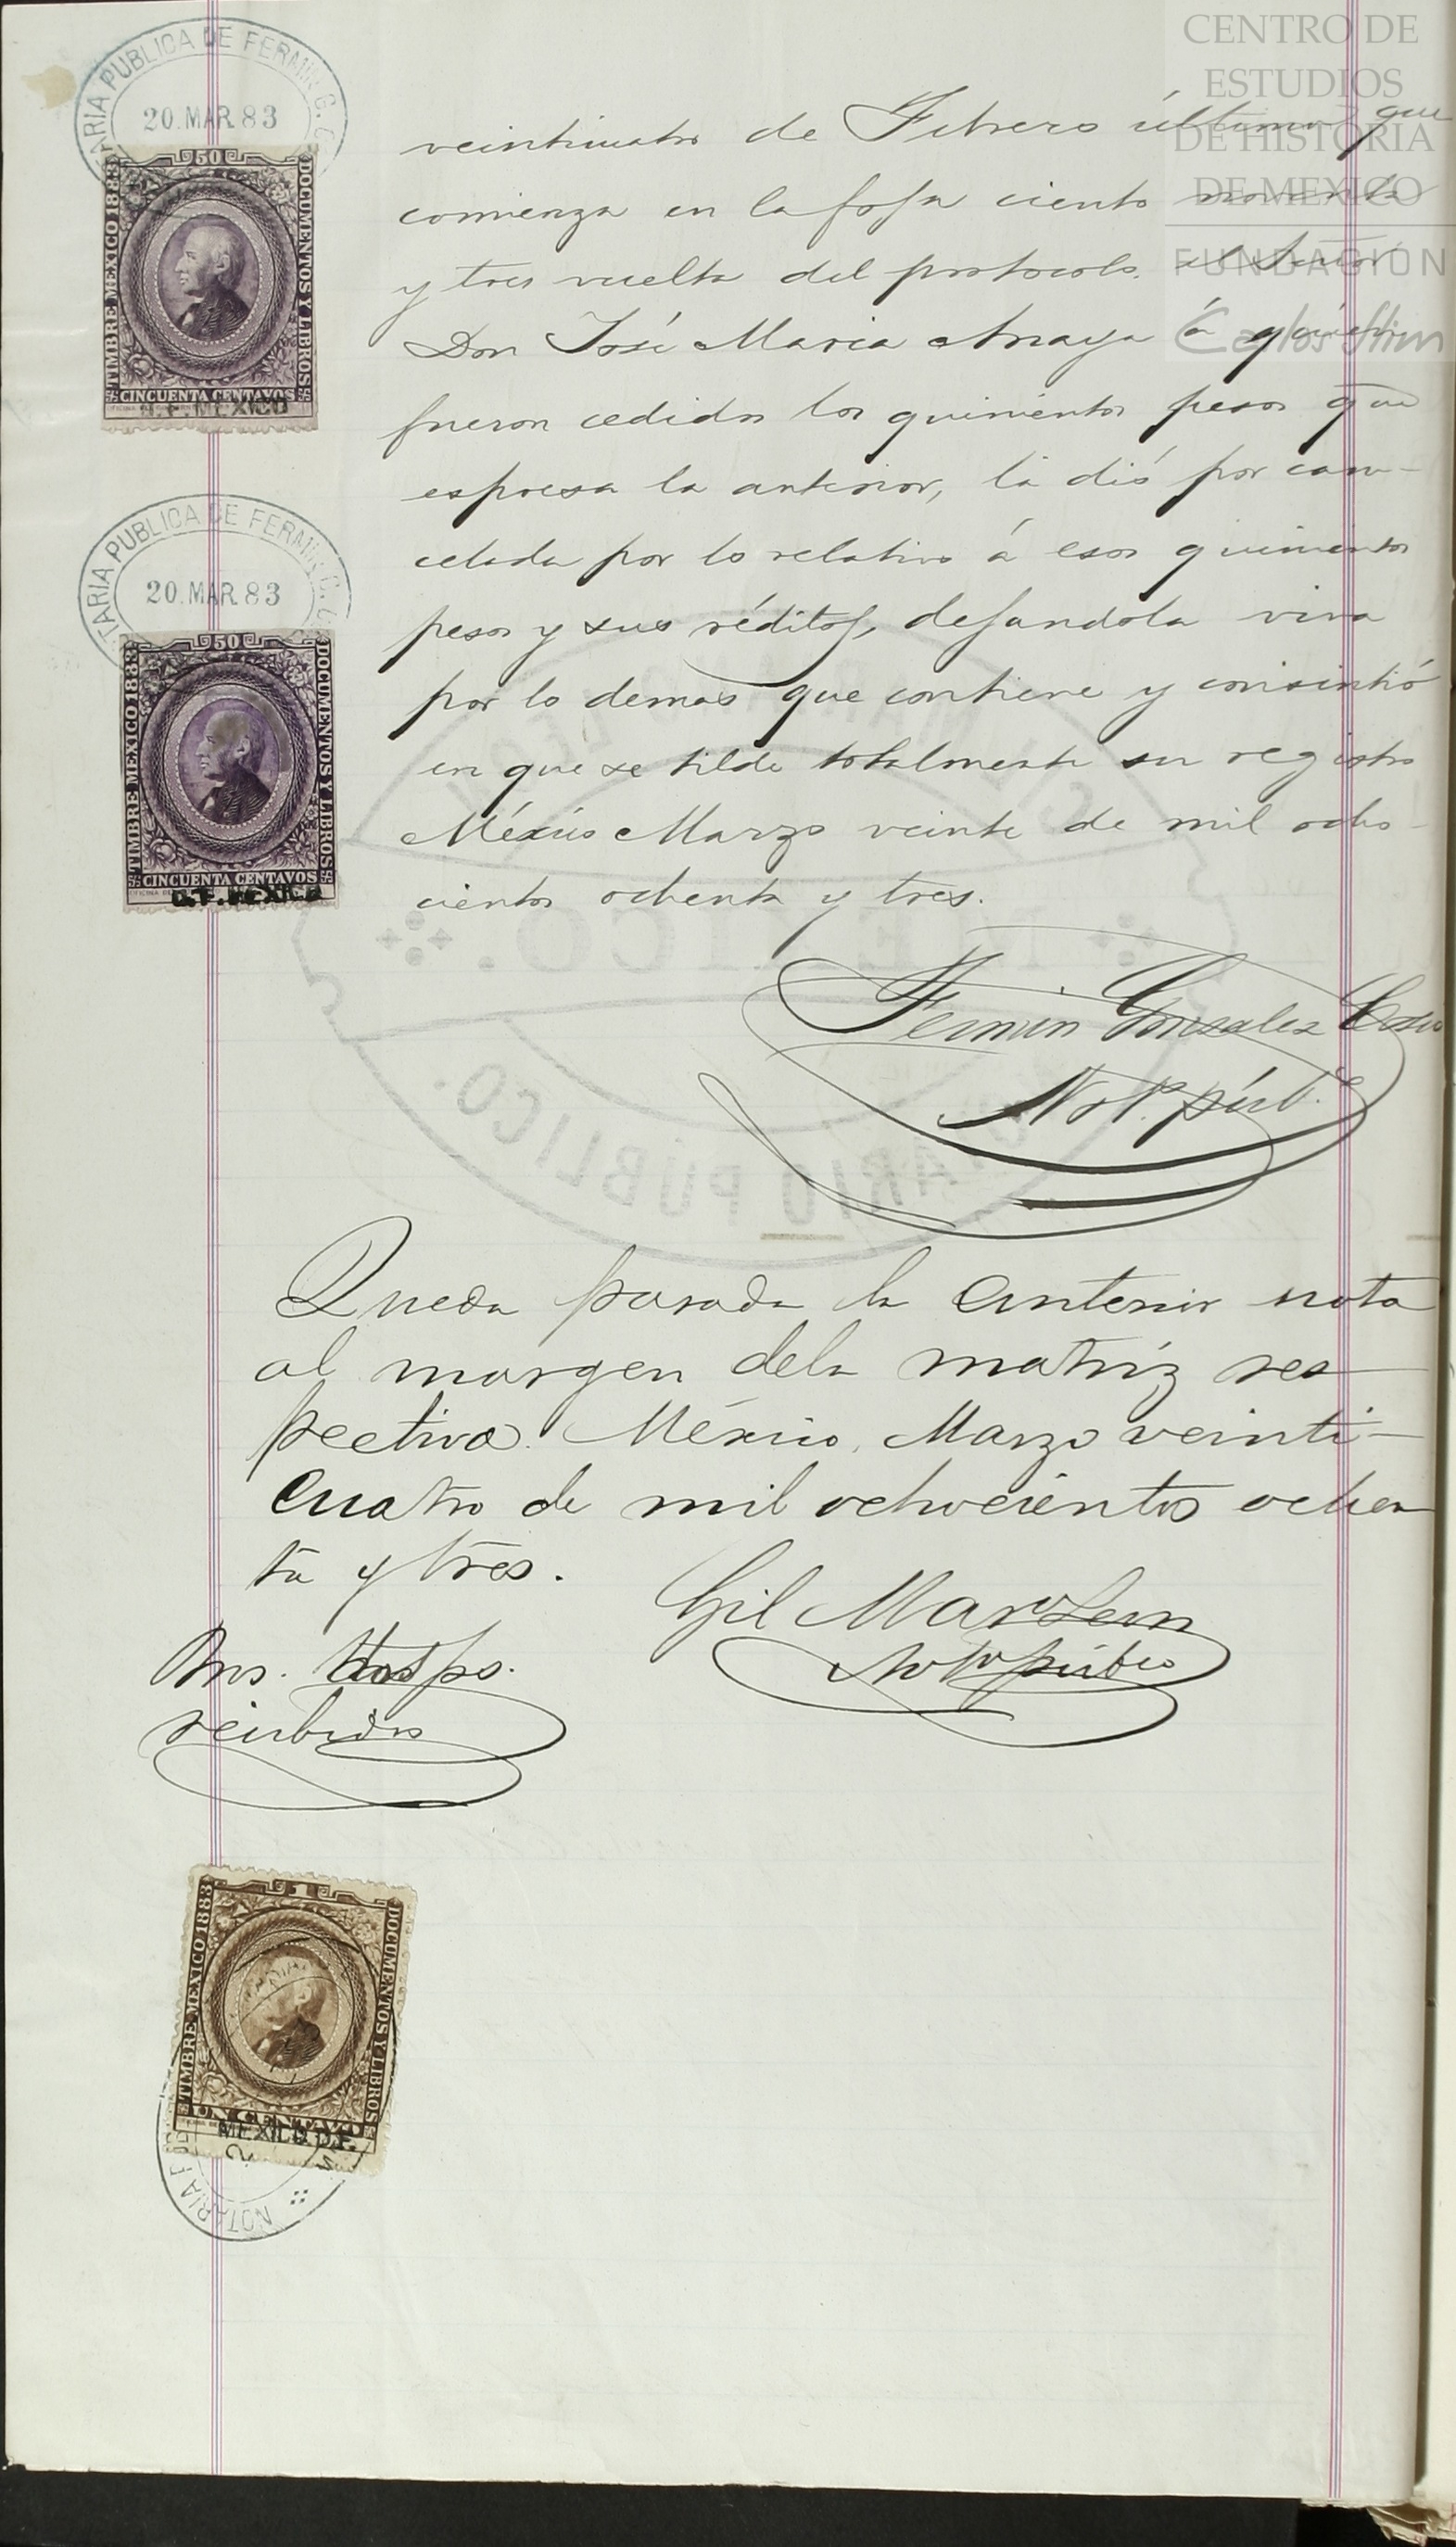 CENTRO DE
ESTUDIOS
DE HISTORIA
DE MEXICO
FUNDACIÓN
Carlos Slim
NOTARIA PUBLICA DE FERMIN G.
20. MAR. 83
50
TIMBRE MEXICO 1883
DOCUMENTOS Y LIBROS
CINCUENTA CENTAVOS
D.F. MEXICO
TARIA PUBLICA DE FERMIN G.
20. MAR 83
50
TIMBRE MEXICO 1883
DOCUMENTOS Y LIBROS
CINCUENTA CENTAVOS
D.F. MEXICO
veinticuatro de Febrero último que
comienza en la foja ciento noventa
y tres vuelta del protocolo. el Señor
Don José Maria Anaya á quien
fueron cedidos los quinientos pesos que
espresa la anterior, la dió por can-
celada por lo relativo á esos quinientos
pesos y sus réditos, dejandola viva
por lo demas que contiene y consintió
en que se tilde totalmente su registro
México Marzo veinte de mil ocho-
cientos ochenta y tres.
Fermin Gonzalez Cosio
Not. púb.
MEXICO.
NOTARIO PÚBLICO.
Queda pasada la anterior nota
al margen dela matríz res
pectiva. México, Marzo veinti-
cuatro de mil ochocientos ochen
ta y tres.
Gil Mar. Leon
Not.o púbco
Dros. dos ps.
recibidos
1
TIMBRE MEXICO 1883
DOCUMENTOS Y LIBROS
UN CENTAVO
MEXICO D.F.
NOTARIA